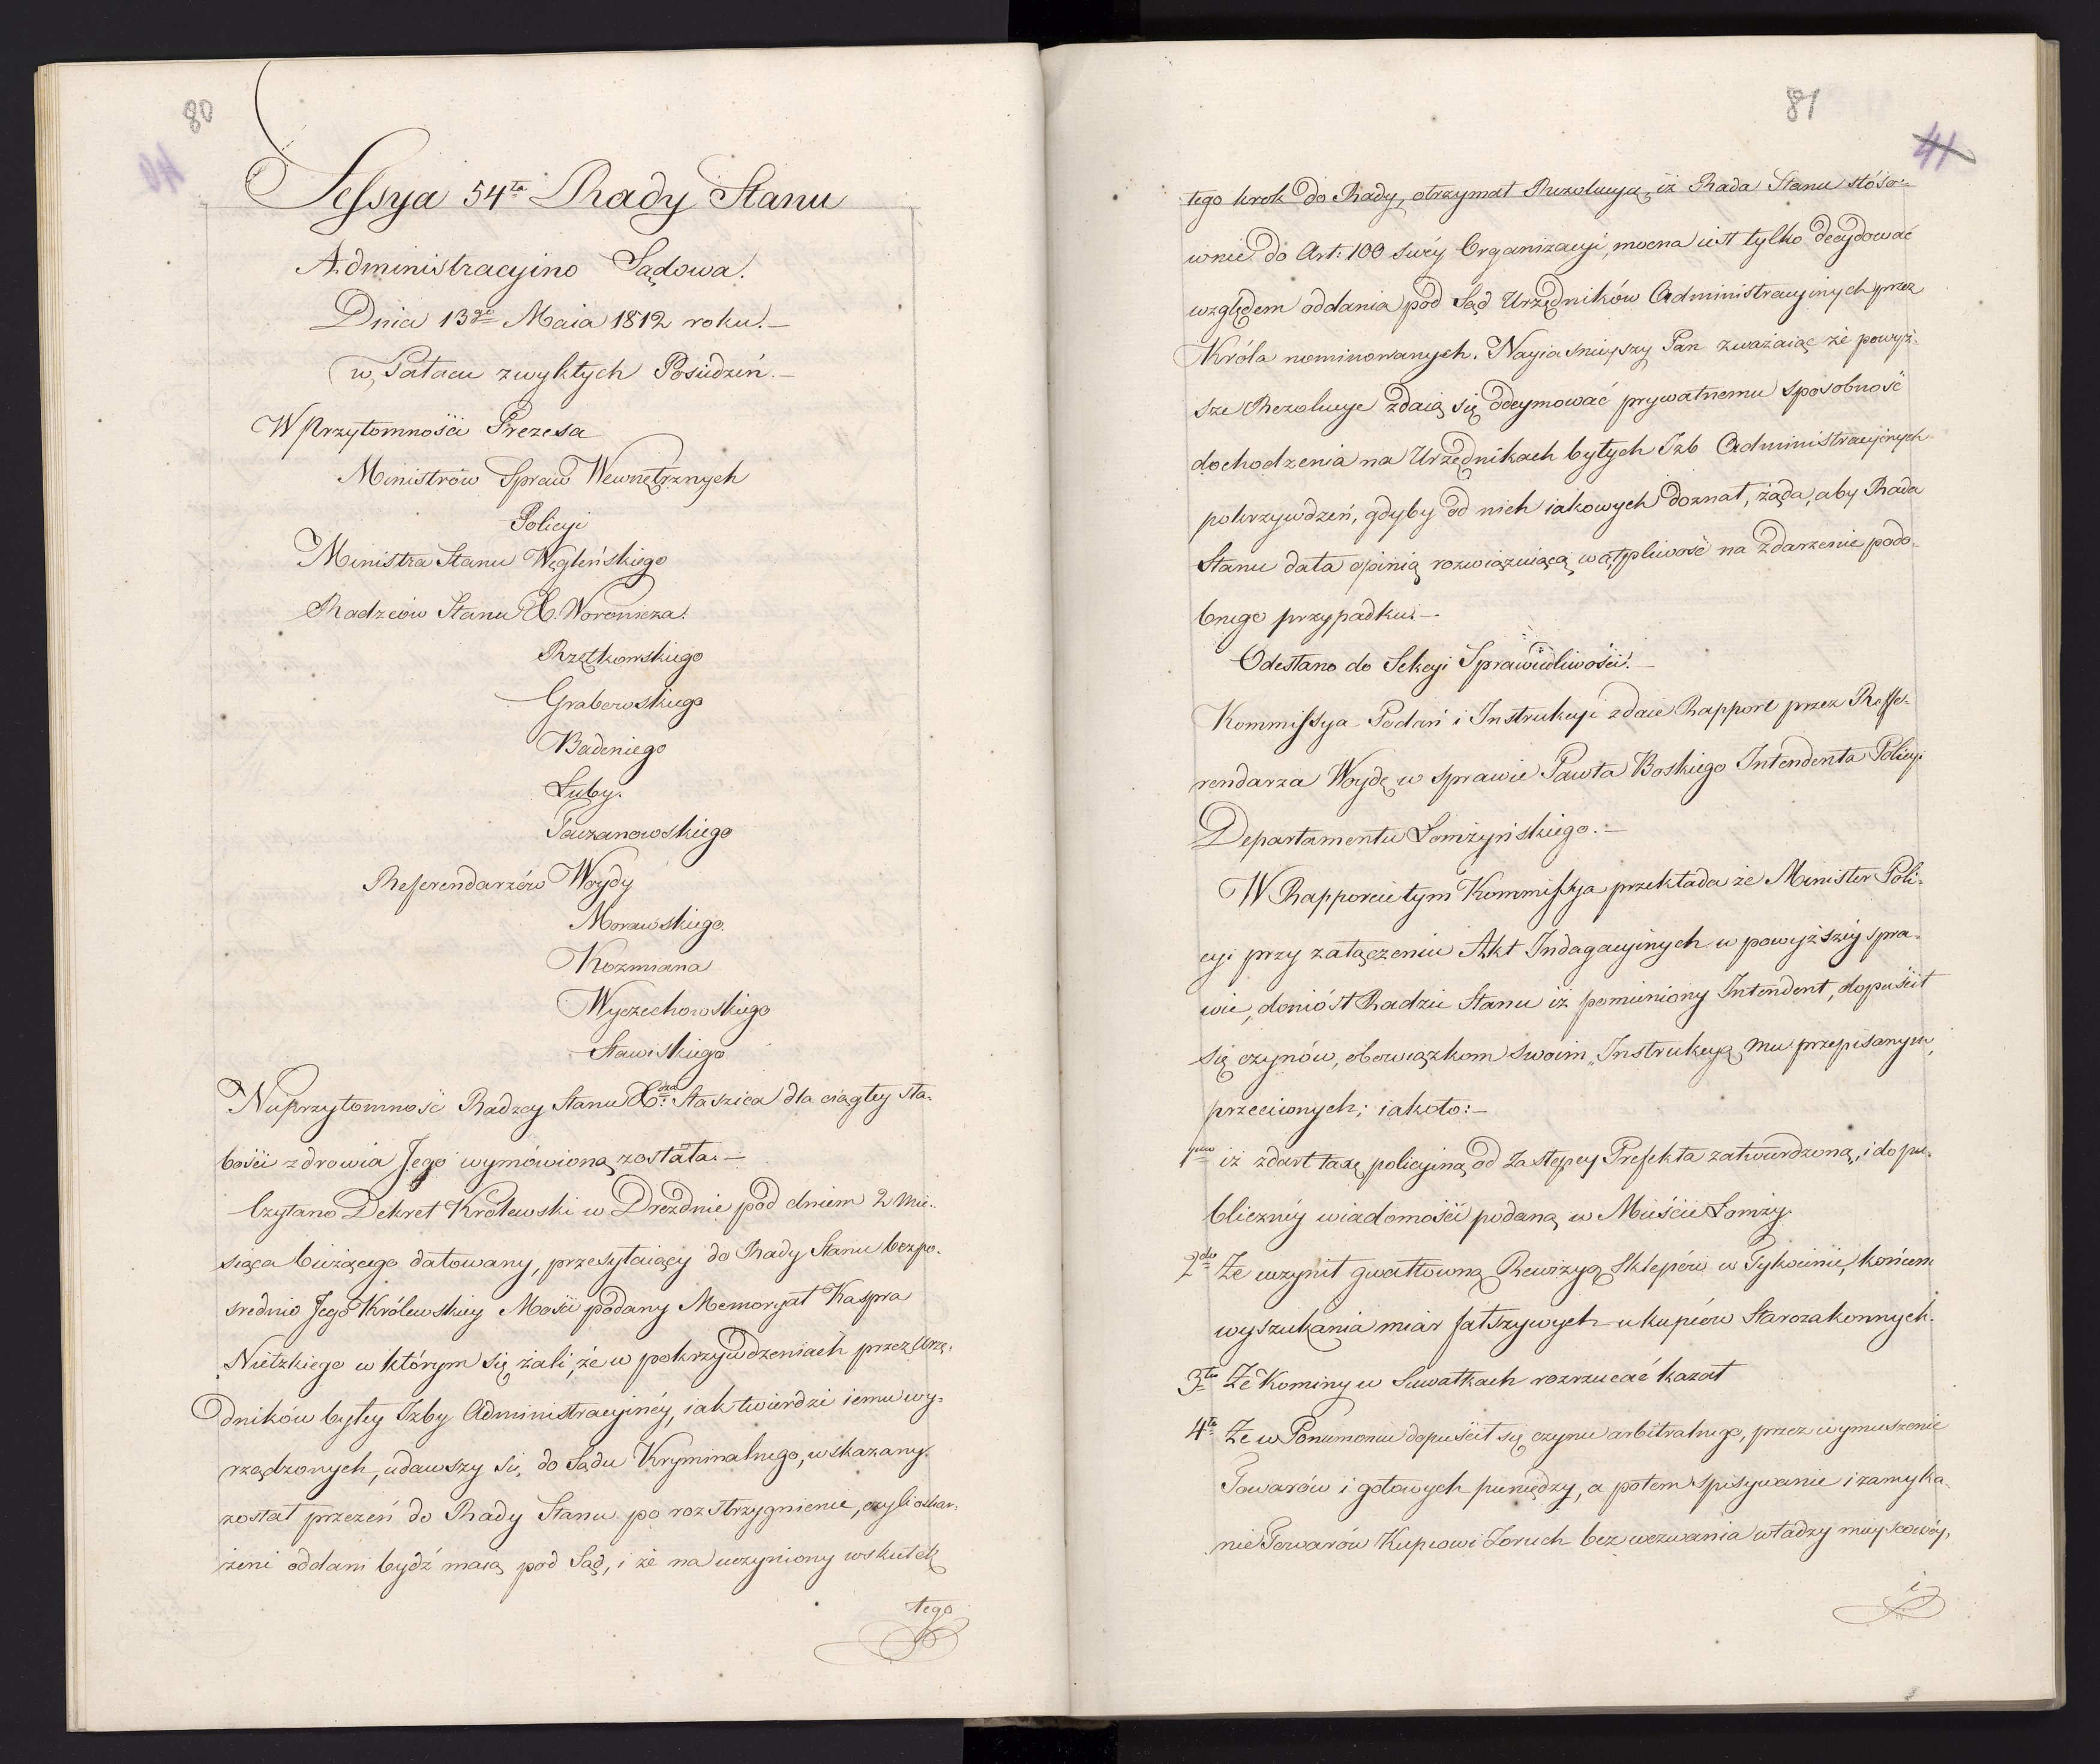 80
40
Sessya 54ta Rady Stanu
Administracyino Sądowa.
Dnia 13go Maia 1812 roku.—
w Pałacu zwykłych Posiedzeń.—
W Przytomności Prezesa
Ministrów Spraw Wewnętrznych
Policyi
Ministra Stanu Węgleńskiego
Radzców Stanu X. Woronicza.
Rzętkowskiego
Grabowskiego
Badeniego
Łuby.
Tarzanowskiego
Referendarzów Woydy
Morawskiego.
Kozmiana
Wyczechowskiego
Stawiskiego
Nieprzytomność Radzcy Stanu Xdza Staszica dla ciągłey sła-
bości zdrowia Jego wymówioną została.—
Czytano Dekret Królewski w Dreźdnie pod dniem 2 Mie-
siąca bieżącego datowany, przesyłaiący do Rady Stanu bezpo-
srednio Jego Królewskiey Mości podany Memoryał Kaspra
Nietzkiego w którym się żali, że w pokrzywdzeniach przez Urzę-
dników byłey Izby Administracyinéy, iak twierdzi iemu wy-
rządzonych, udawszy się do Sądu Kryminalnego, wskazany
został przezeń do Rady Stanu po rozstrzygnienie, czyli oskar-
żeni oddani bydź maią pod Sąd, i że na uczyniony wskutek
tego
81
41
tego krok do Rady, otrzymał Rezolucyą, iż Rada Stanu stóso-
wnie do Art: 100 swéy Organizacyi, mocna iest tylko decydować
względem oddania pod Sąd Urzędników Administracyinych przez
Króla nominowanych. Nayiasnieyszy Pan zważaiąc że powyż-
sze Rezolucye zdaią się odeymować prywatnemu sposobność
dochodzenia na Urzędnikach byłych Izb Administracyinych
pokrzywdzeń, gdyby od nich iakowych doznał, żąda, aby Rada
Stanu dała opinią rozwiązuiącą wątpliwość na zdarzenie podo-
bnego przypadku.—
Odesłano do Sekcyi Sprawiedliwości.—
Kommissya Podań i Instrukcyi zdaie Rapport przez Reffe-
rendarza Woydę w sprawie Pawła Boskiego Intendenta Policyi
Departamentu Łomżyńskiego.—
W Rapporcie tym Kommissya przekłada że Minister Poli-
cyi przy załączeniu Akt Indagacyinych w powyższéy spra-
wie, doniósł Radzie Stanu iż pomieniony Intendent, dopuścił
się czynów, obowiązkom swoim Instrukcyą mu przepisanym,
przeciwnych; iakoto:—
1mo iż zdarł taxę policyiną od Zastępcy Prefekta zatwierdzoną, i do pu-
blicznéy wiadomości podaną w Mieście Łomży.
2do Że uczynił gwałtowną Rewizyą Sklepów w Tykocinie, końcem
wyszukania miar fałszywych u kupców Starozakonnych.
3tio Że Kominy w Suwałkach rozrzucać kazał
4to Że w Poniemoniu dopuścił się czynu arbitralnego, przez wymuszenie
Towarów i gotowych pieniędzy, a potem spisywanie i zamyka-
nie Towarów Kupcowi Zoruch bez wezwania władzy mieyscowéy,
i